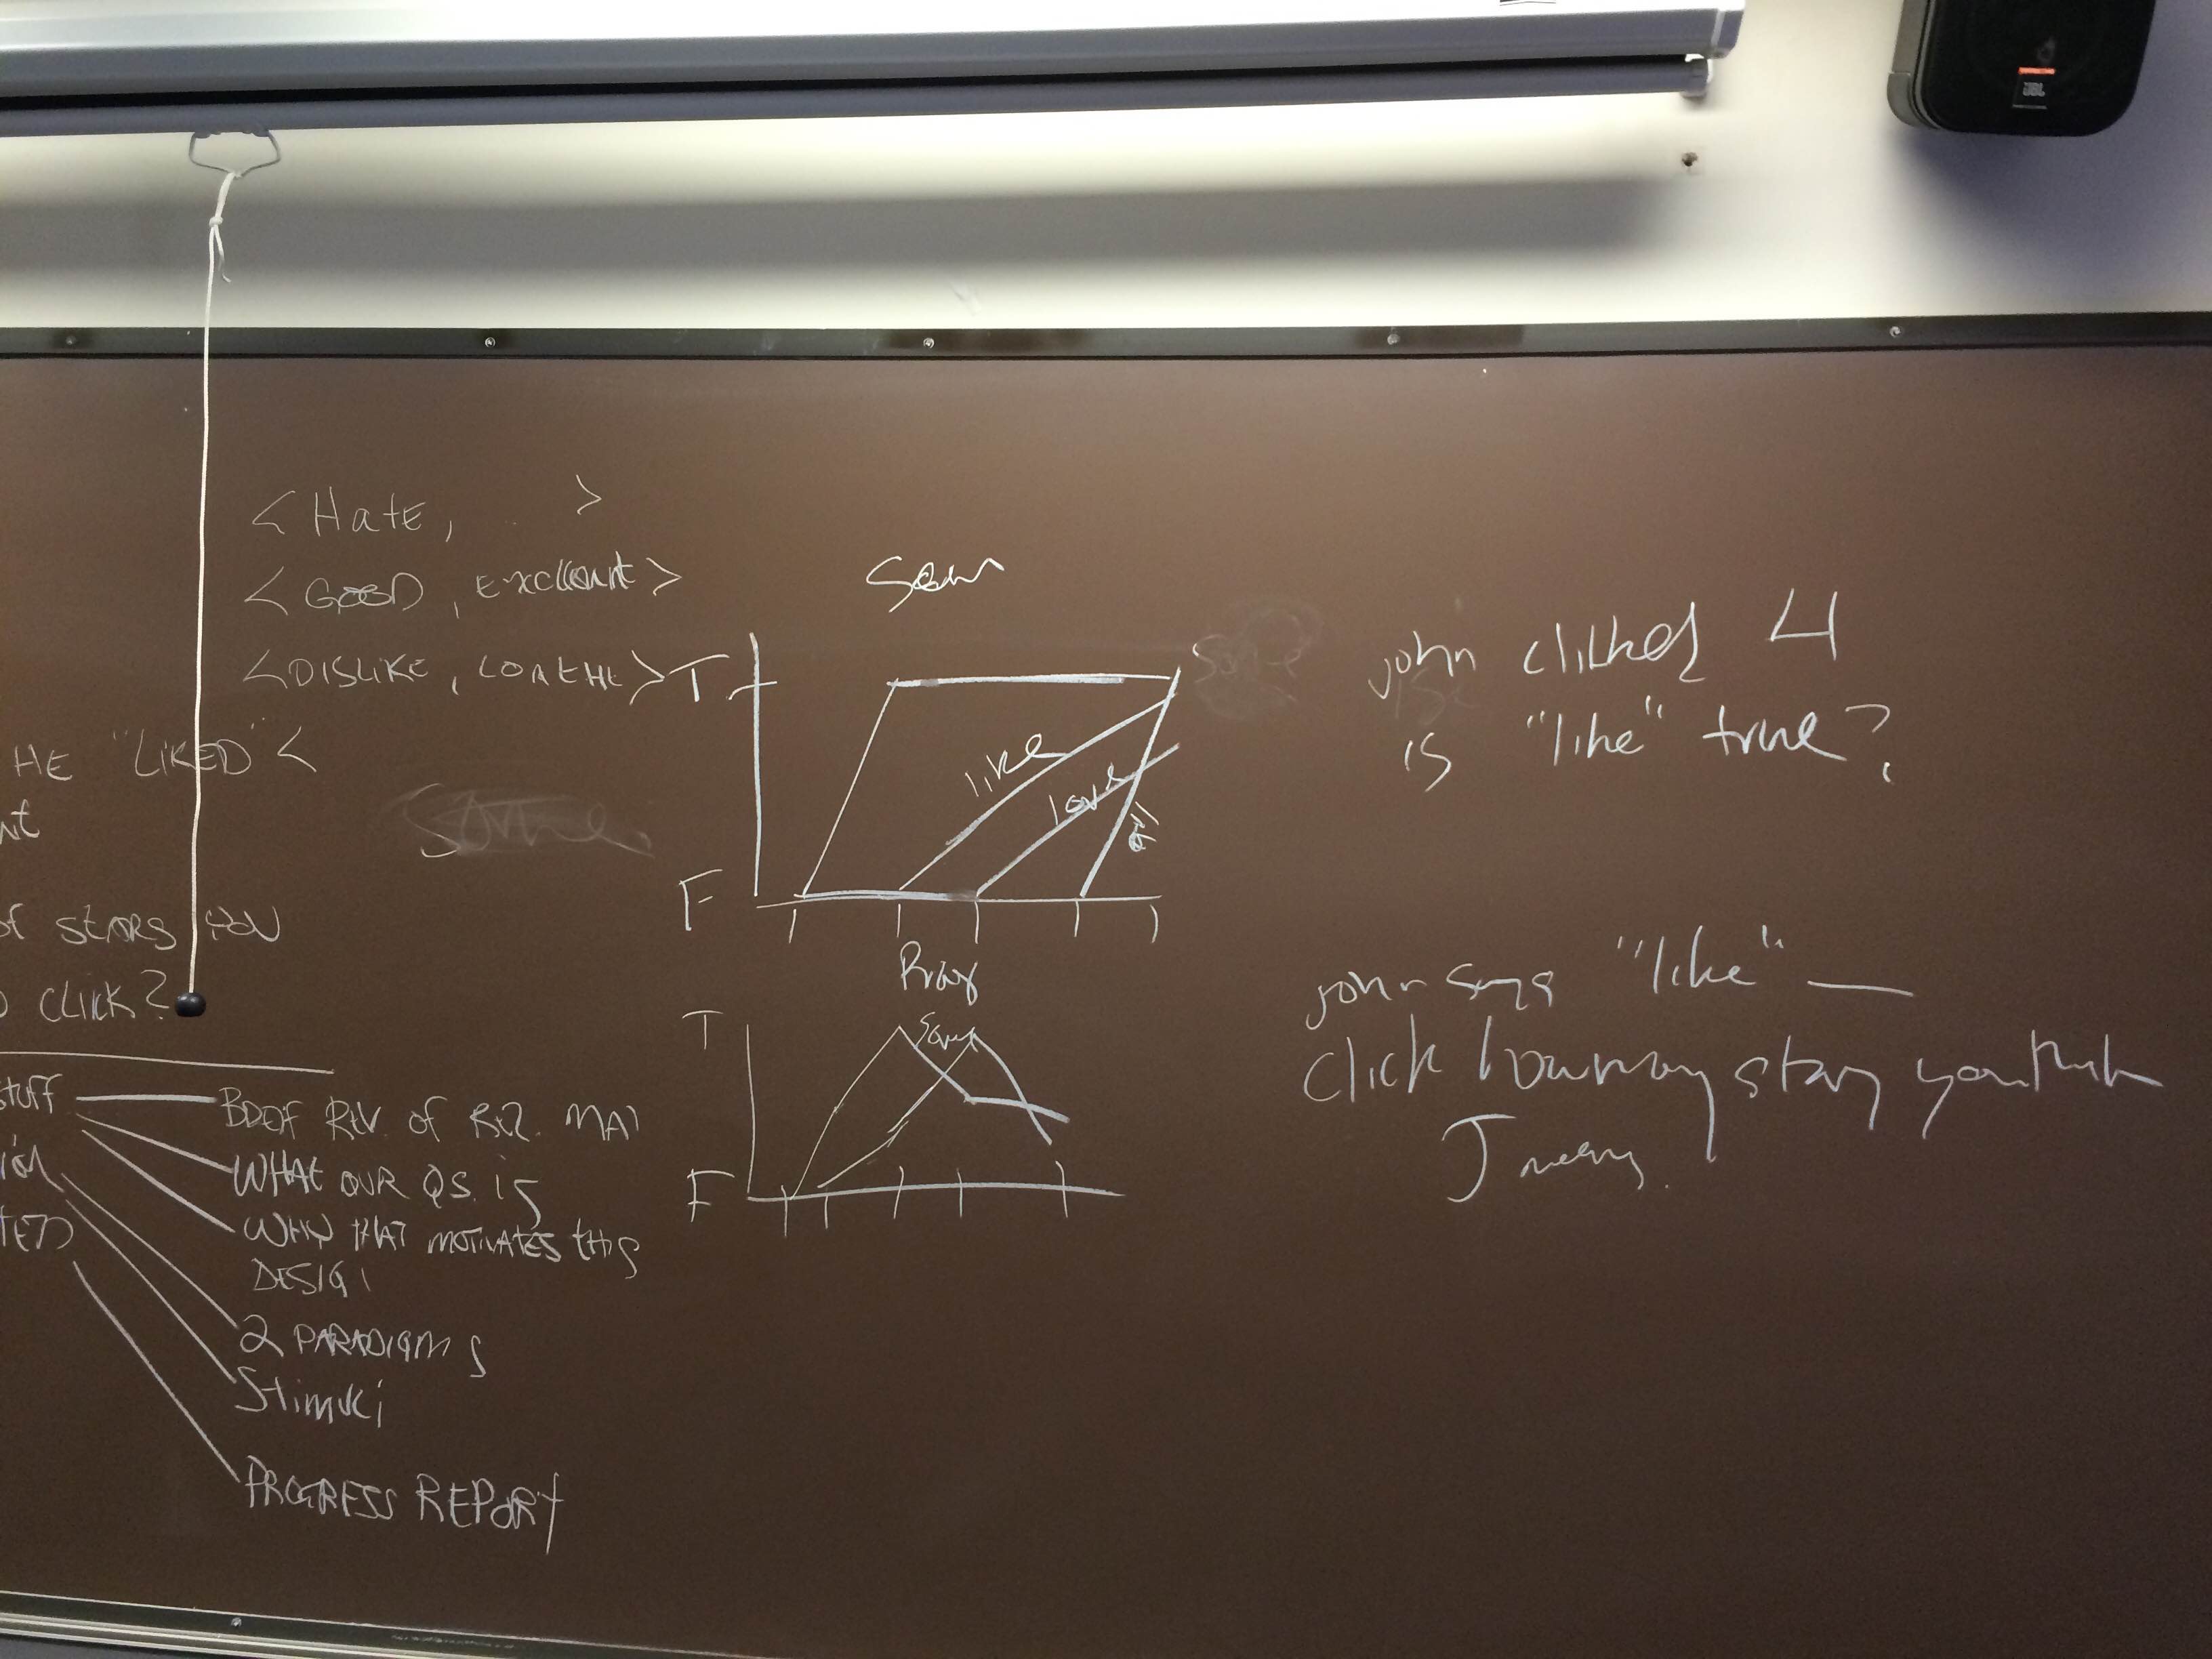 < Hate, >
< GOOD, Excllent >
< DISLIKE, LOATHE >
HE "LIKED" <
nt
of stars you
CLICK?
stuff
BRIEF REV. of REZ. MAT
WHAT OUR QS. is
WHY tHAT MOTIVATES tHIS
DESIGN
2 PARADIGMS
Stimuli
PROGRESS REPORT
Sem
T
F
some
like
love
all
Prag
T
F
Some
john clicked 4
is "like" true?
john says "like" —
click how many stars you think
J means.
JBL